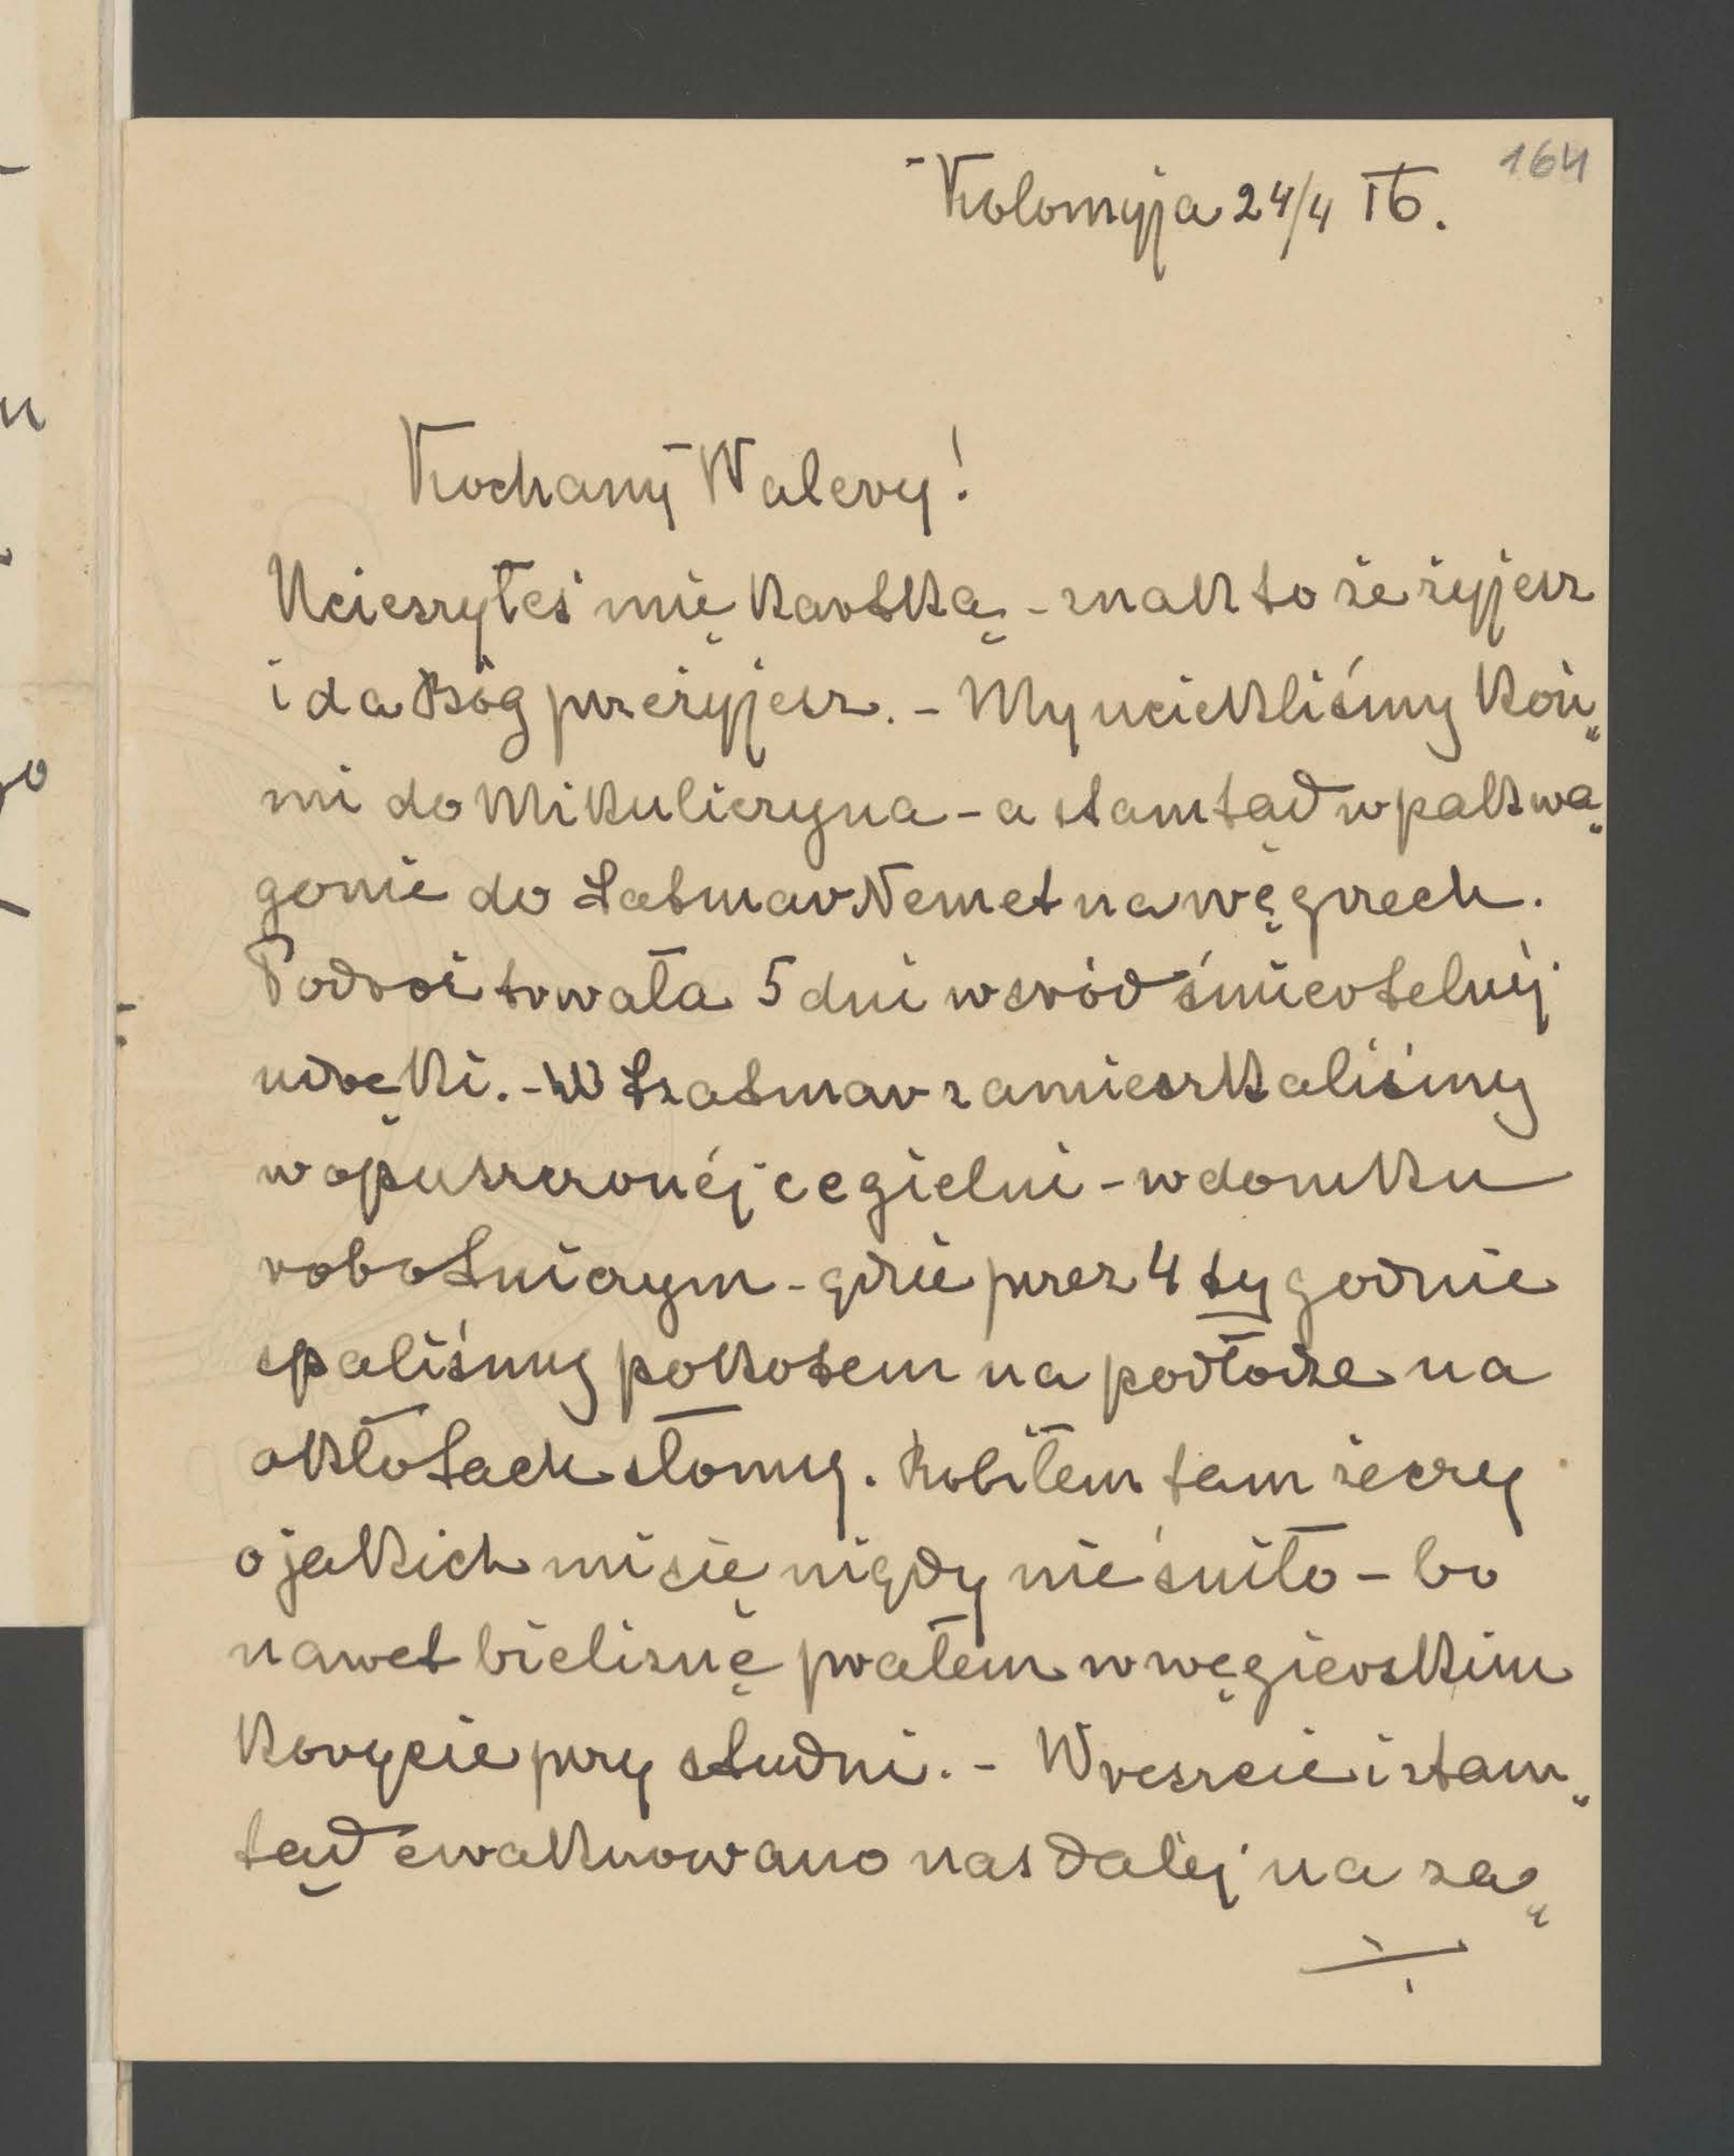 164
Kolomyja 24/4 16.
Kochany Walery!
Ucieszyłeś mię kartką - znak to że żyjesz
i da Bóg przeżyjesz. - My uciekliśmy koń„
mi do Mikuliczyna - a stamtąd w pakwa„
gonie do Satmar Nemet na węgrzech.
Podróż trwała 5 dni wsród śmiertelnéj
udręki. - W Szatmar zamieszkaliśmy
w opuszczonéj cegielni - w domku
robotniczym - gdzie przez 4 tygodnie
spaliśmy pokotem na podłodze na
okłotach słomy. Robiłem tam rzeczy
o jakich mi się nigdy nie śniło - bo
nawet bieliznę prałem w węgierskim
korycie przy studni. - Wreszcie i stam„
tąd ewakuowano nas daléj na za„